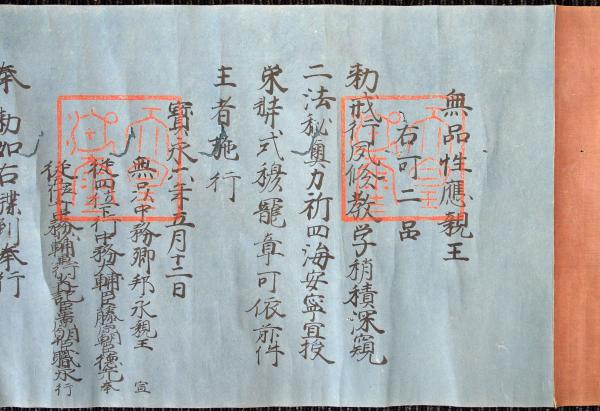 無品性應親王
右可二品
勅戒行夙修教学稍積深窺
二法秘奧力祈四海安寧宜授
栄辭式穆寵章可依前件
主者施行
寳永六年五月十二日
無品中務卿邦永親王 宣
從四位下行中務大輔臣藤原朝臣 奉
務 輔 行
奉
勅如右牒到奉行